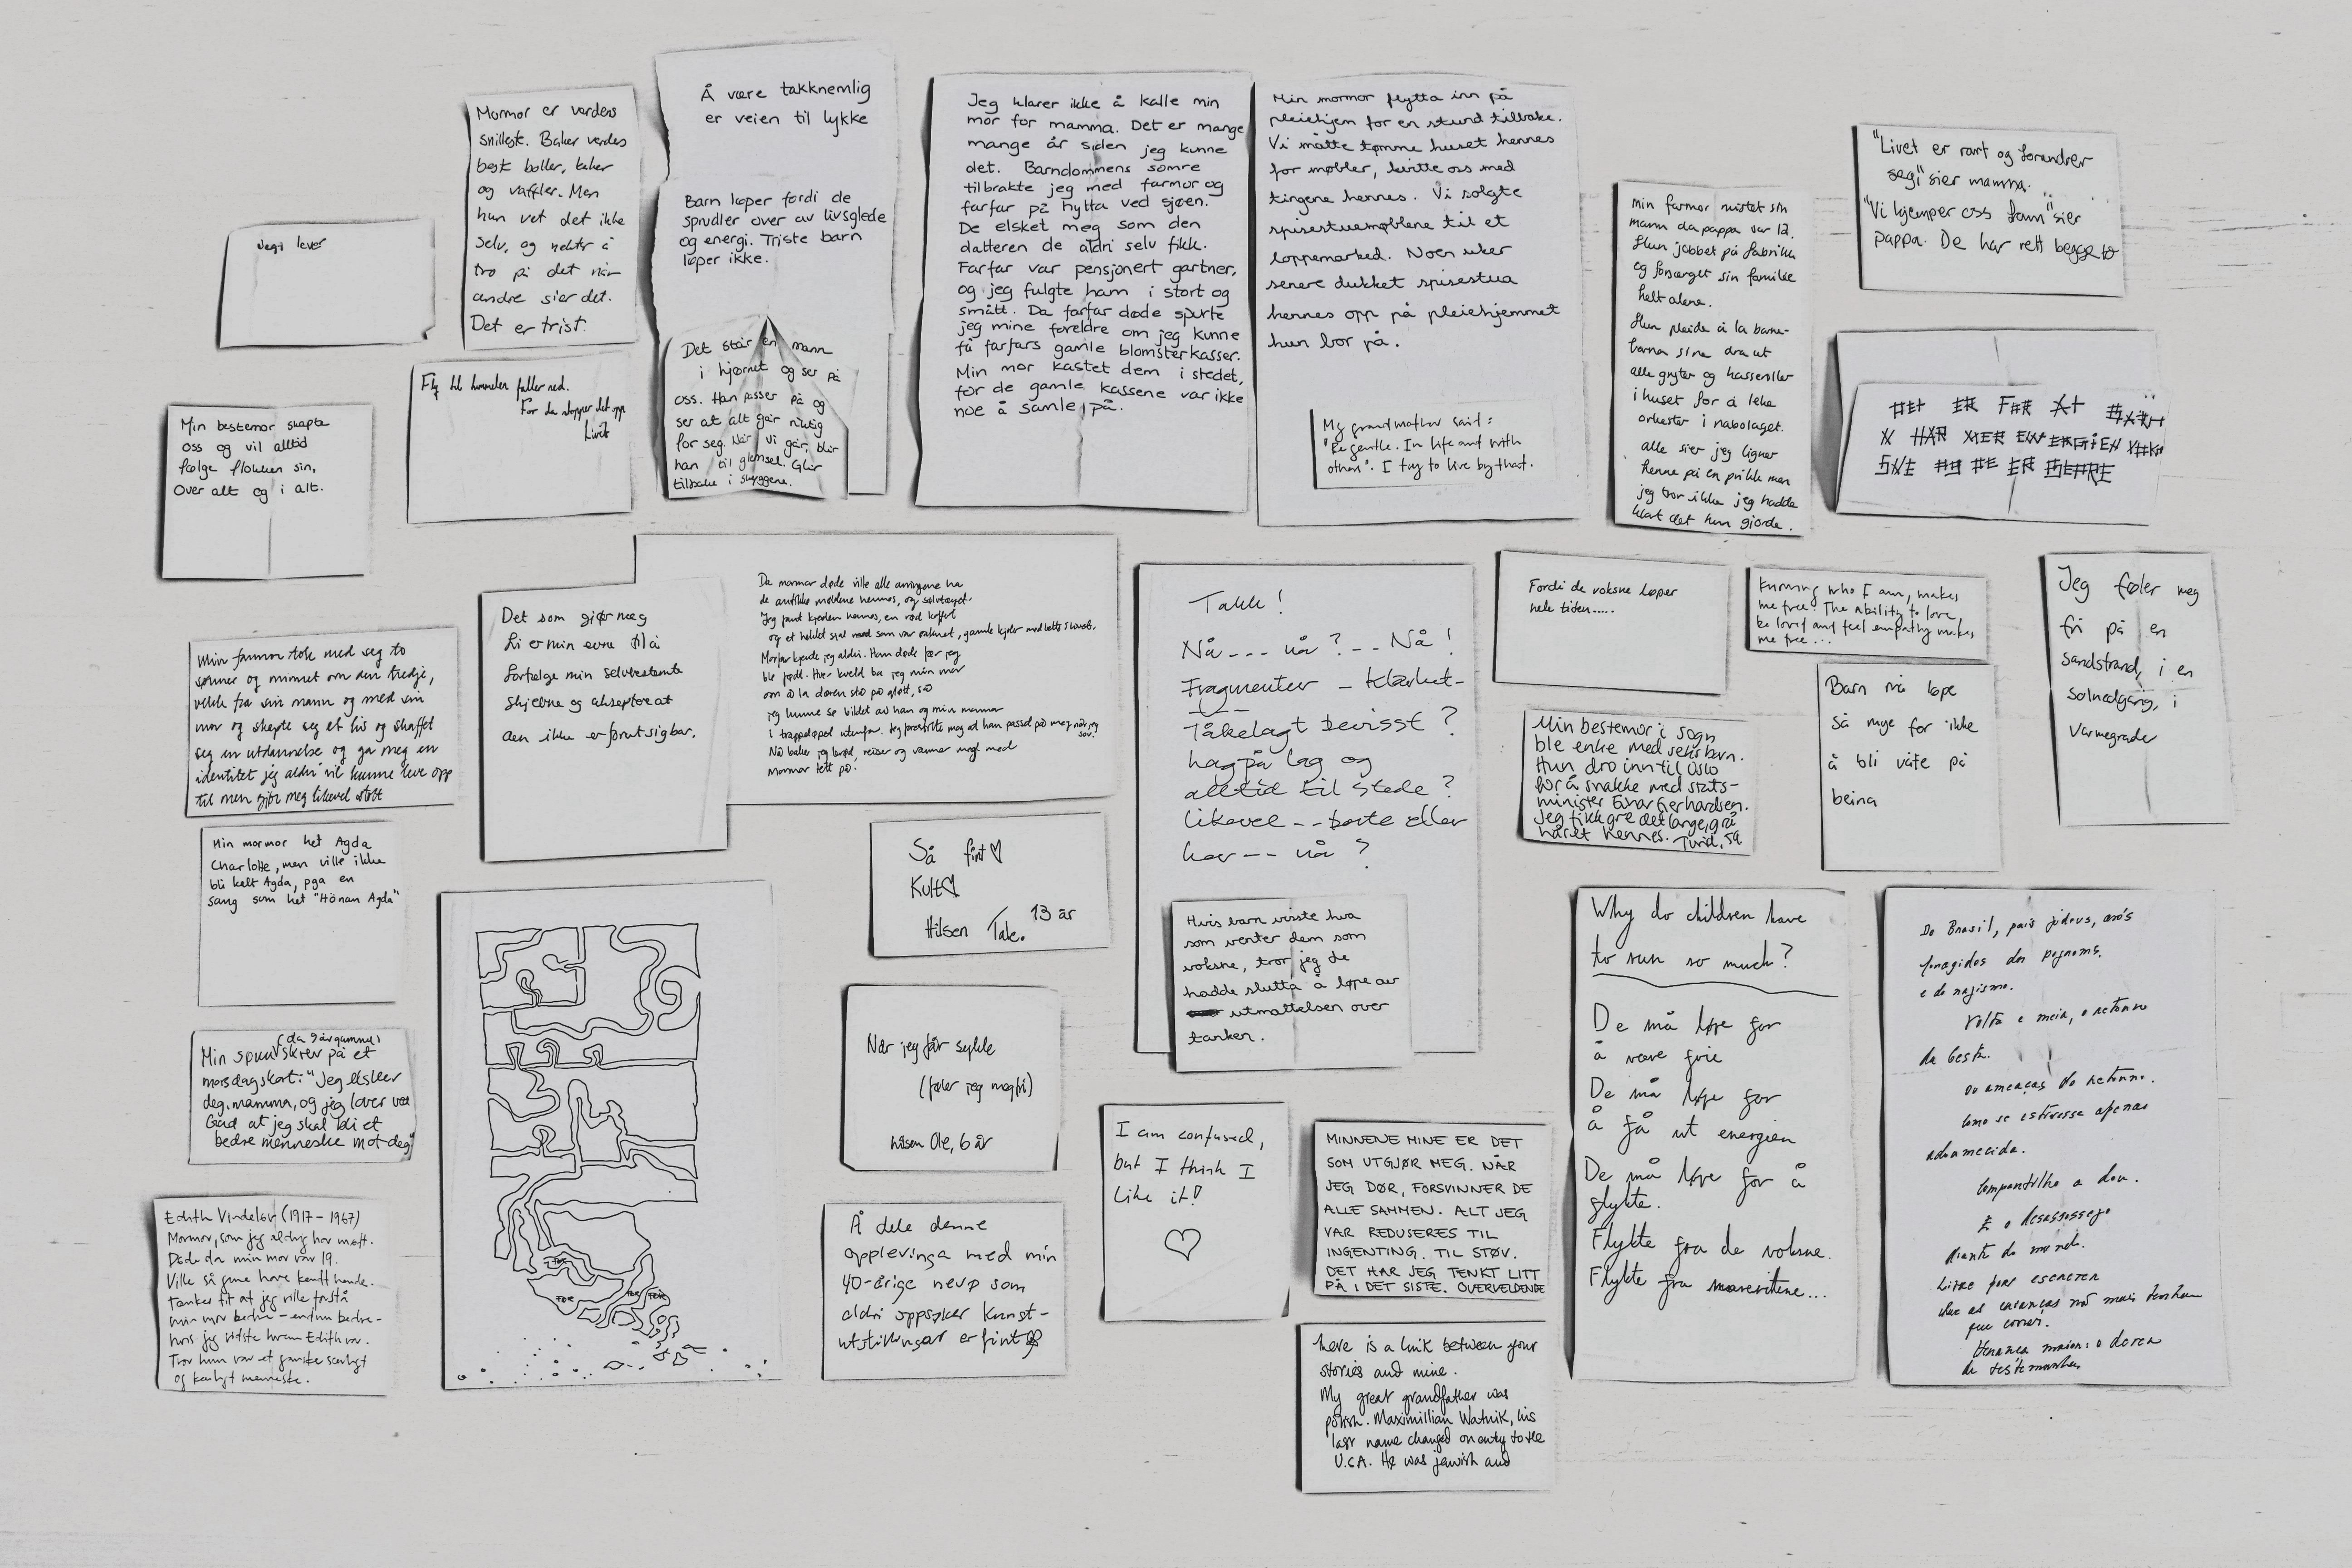 Mormor er verdens
snilleste. Baker verdes
best boller, kaker
og vafler. Men
hun vet det ikke
selv, og nekter å
tro på det når
andre sier det.
Det er trist.
Å være takknemlig
er veien til lykke
Barn løper fordi de
sprudler over av livsglede
og energi. Triste barn
løper ikke.
Det står en mann
i hjørnet og ser på
oss. Han passer på og
ser at alt går riktig
for seg. Når vi går, blir
han til glemsel. Glir
tilbake i skyggene.
Jeg klarer ikke å kalle min
mor for mamma. Det er mange
mange år siden jeg kunne
det. Barndommens somre
tilbrakte jeg med farmor og
farfar på hytta ved sjøen.
De elsket meg som den
datteren de aldri selv fikk.
Farfar var pensjonert gartner,
og jeg fulgte ham i stort og
smått. Da farfar døde spurte
jeg mine foreldre om jeg kunne
få farfars gamle blomsterkasser.
Min mor kastet dem i stedet,
for de gamle kassene var ikke
noe å samle på.
Min mormor flytta inn på
pleiehjem for en stund tilbake.
Vi måtte tømme huset hennes
for møbler, kvitte oss med
tingene hennes. Vi solgte
spisestuemøblene til et
loppemarked. Noen uker
senere dukket spisestua
hennes opp på pleiehjemmet
hun bor på.
My grandmother said:
"Be gentle. In life and with
others". I try to live by that.
min farmor mistet sin
mann da pappa var 12.
Hun jobbet på fabrikk
og forsørget sin familie
helt alene.
Hun pleide å la barne-
barna sine dra ut
alle gryter og kasseroller
i huset for å leke
orkester i nabolaget.
alle sier jeg ligner
henne på en prikk men
jeg tror ikke jeg hadde
klart det hun gjorde.
"Livet er rart og forandrer
seg" sier mamma.
"Vi kjemper oss fram" sier
pappa. De har rett begge to
DET ER FØR AT
HAR MER ENERGIEN
ER BEDRE
Jeg lever
Fly til himmelen faller ned.
For da stopper det opp
Livet
Min bestemor skapte
oss og vil alltid
følge flokken sin,
Over alt og i alt.
Min farmor tok med seg to
sønner og minnet om den tredje,
vekk fra sin mann og med sin
mor og skapte seg et liv og skaffet
seg en utdannelse og ga meg en
identitet jeg aldri vil kunne leve opp
til men gjør meg likevel stolt
Det som gjør meg
fri er min evne til å
forfølge min selvbestemte
skjebne og akseptere at
den ikke er forutsigbar.
Da mormor døde ville alle arvingene ha
de antikke møblene hennes, og sølvtøyet.
Jeg fant kjolene hennes, en rød koffert
og et heklet sjal
Morfar kjente jeg aldri. Han døde før jeg
ble født. Hver kveld ba jeg min mor
om å la døren stå på gløtt, så
jeg kunne se bildet av han og min mormor
i trappeløpet utenfor. Jeg forestilte meg at han passet på meg når jeg
sov.
Nå baker jeg brød, reiser og varmer meg med
Mormor tett på.
Takk!
Nå --- nå? -- Nå!
Fragmenter - klarhet-
Tåkelagt bevisst?
og
alltid til stede?
likevel -- borte eller
her -- nå?
Hvis barn visste hva
som venter dem som
voksne, tror jeg de
hadde slutta å løpe av
utmattelsen over
tanken.
Fordi de voksne løper
hele tiden.....
Knowing who I am, makes
me free. The ability to love,
be loved and feel empathy makes
me free...
Jeg føler meg
fri på en
sandstrand, i en
solnedgang, i
varmegrader
Min bestemor i Sogn
ble enke med seks barn.
Hun dro inn til Oslo
for å snakke med stats-
minister Einar Gerhardsen.
Jeg fikk gre det lange, grå
håret hennes. Turid, 59
Barn må løpe
så mye for ikke
å bli våte på
beina
Min mormor het Agda
Charlotte, men ville ikke
bli kalt Agda, pga en
sang som het "Hönan Agda"
Så fint♡
Kult♡
Hilsen Tale. 13 år
(da 9 år gammel)
Min sønn skrev på et
morsdagskort: "Jeg elsker
deg, mamma, og jeg lover ved
Gud at jeg skal bli et
bedre menneske mot deg"
Når jeg får sykle
(føler jeg meg fri)
hilsen Ole, 6 år
Edith Vindeløv (1917-1967)
Mormor, som jeg aldrig har mødt.
Døde da min mor var 19.
Ville så gerne have kendt hende.
Tænker tit at jeg ville forstå
min mor bedre - endnu bedre -
hvis jeg vidste hvem Edith var.
Tror hun var et ganske særligt
og kærligt menneske.
Å dele denne
opplevinga med min
40-årige nevø som
aldri oppsøker kunst-
utstillingar er fint
I am confused,
but I think I
like it!
MINNENE MINE ER DET
SOM UTGJØR MEG. NÅR
JEG DØR, FORSVINNER DE
ALLE SAMMEN. ALT JEG
VAR REDUSERES TIL
INGENTING. TIL STØV.
DET HAR JEG TENKT LITT
PÅ I DET SISTE. OVERVELDENDE
There is a link between your
stories and mine.
My great grandfather was
polish. Maximillian Watnik, his
last name changed on entry to the
U.S.A. He was jewish and
Why do children have
to run so much?
De må løpe for
å være frie
De må løpe for
å få ut energien
De må løpe for å
flykte.
Flykte fra de voksne.
Flykte fra marerittene...
Do Brasil, pais judeus, avós
foragidos dos pogroms.
e do nazismo.
Volta e meia, o retorno
da besta.
Ou ameaças do retorno.
Como se estivesse apenas
adormecida.
Compartilho a dor.
E o desassossego
diante do mundo.
Livre para escrever
que as crianças não mais tenham
que correr.